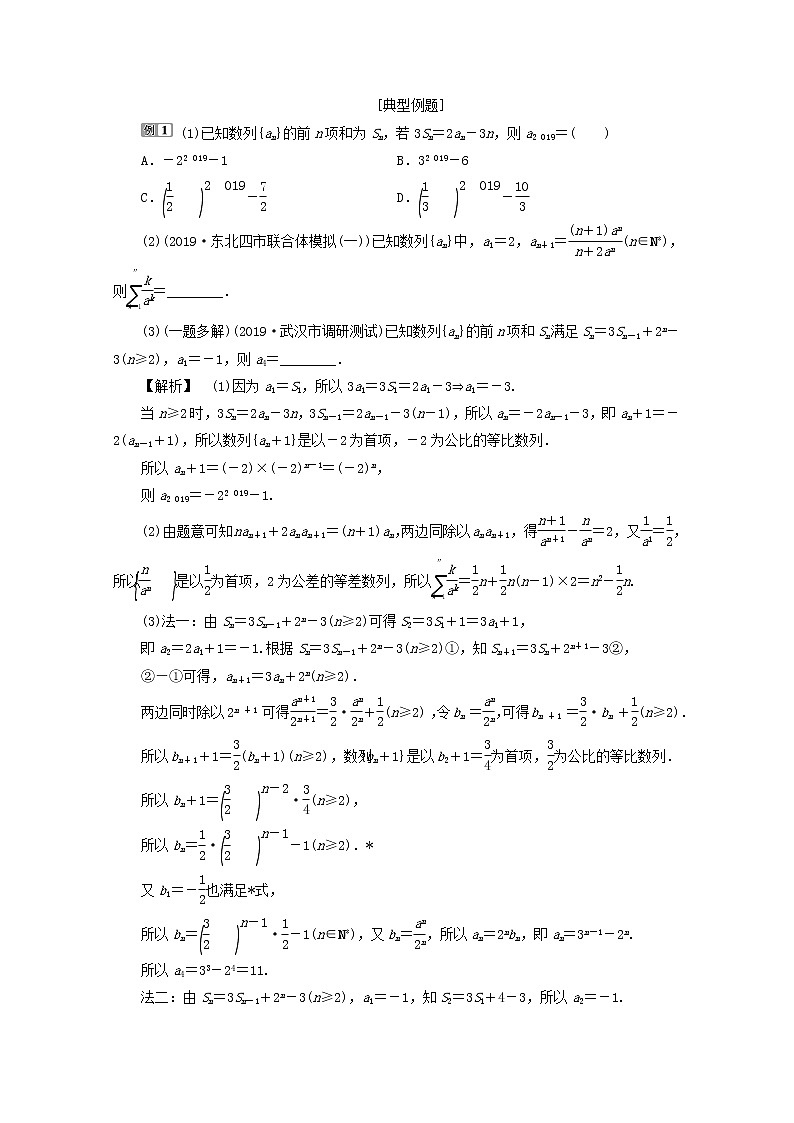 [典型例题]
例1 (1)已知数列{aₙ}的前n项和为Sₙ，若3Sₙ＝2aₙ－3n，则a₂ ₀₁₉＝(　　)
A．－2² ⁰¹⁹－1　　B．3² ⁰¹⁹－6
C．(1/2)² ⁰¹⁹－7/2　　D．(1/3)² ⁰¹⁹－10/3
(2)(2019·东北四市联合体模拟(一))已知数列{aₙ}中，a₁＝2，aₙ₊₁＝(n＋1)aⁿ/(n＋2aⁿ)(n∈N*)，
则∑k/aᵏ＝________.
(3)(一题多解)(2019·武汉市调研测试)已知数列{aₙ}的前n项和Sₙ满足Sₙ＝3Sₙ₋₁＋2ⁿ－
3(n≥2)，a₁＝－1，则a₄＝________.
【解析】　(1)因为a₁＝S₁，所以3a₁＝3S₁＝2a₁－3⇒a₁＝－3.
当n≥2时，3Sₙ＝2aₙ－3n，3Sₙ₋₁＝2aₙ₋₁－3(n－1)，所以aₙ＝－2aₙ₋₁－3，即aₙ＋1＝－
2(aₙ₋₁＋1)，所以数列{aₙ＋1}是以－2为首项，－2为公比的等比数列.
所以aₙ＋1＝(－2)×(－2)ⁿ⁻¹＝(－2)ⁿ，
则a₂ ₀₁₉＝－2² ⁰¹⁹－1.
(2)由题意可知naₙ₊₁＋2aₙaₙ₊₁＝(n＋1)aₙ，两边同除以aₙaₙ₊₁，得(n＋1)/aⁿ⁺¹－n/aⁿ＝2，又1/a¹＝1/2，
所以{n/aⁿ}是以1/2为首项，2为公差的等差数列，所以∑k/aᵏ＝1/2n＋1/2n(n－1)×2＝n²－1/2n.
(3)法一：由Sₙ＝3Sₙ₋₁＋2ⁿ－3(n≥2)可得S₂＝3S₁＋1＝3a₁＋1，
即a₂＝2a₁＋1＝－1.根据Sₙ＝3Sₙ₋₁＋2ⁿ－3(n≥2)①，知Sₙ₊₁＝3Sₙ＋2ⁿ⁺¹－3②，
②－①可得，aₙ₊₁＝3aₙ＋2ⁿ(n≥2).
两边同时除以2ⁿ⁺¹可得aⁿ⁺¹/2ⁿ⁺¹＝3/2·aⁿ/2ⁿ＋1/2(n≥2)，令bₙ＝aⁿ/2ⁿ，可得bₙ₊₁＝3/2·bₙ＋1/2(n≥2).
所以bₙ₊₁＋1＝3/2(bₙ＋1)(n≥2)，数列{bₙ＋1}是以b₂＋1＝3/4为首项，3/2为公比的等比数列.
所以bₙ＋1＝(3/2)ⁿ⁻²·3/4(n≥2)，
所以bₙ＝1/2·(3/2)ⁿ⁻¹－1(n≥2).*
又b₁＝－1/2也满足*式，
所以bₙ＝(3/2)ⁿ⁻¹·1/2－1(n∈N*)，又bₙ＝aⁿ/2ⁿ，所以aₙ＝2ⁿbₙ，即aₙ＝3ⁿ⁻¹－2ⁿ.
所以a₄＝3³－2⁴＝11.
法二：由Sₙ＝3Sₙ₋₁＋2ⁿ－3(n≥2)，a₁＝－1，知S₂＝3S₁＋4－3，所以a₂＝－1.